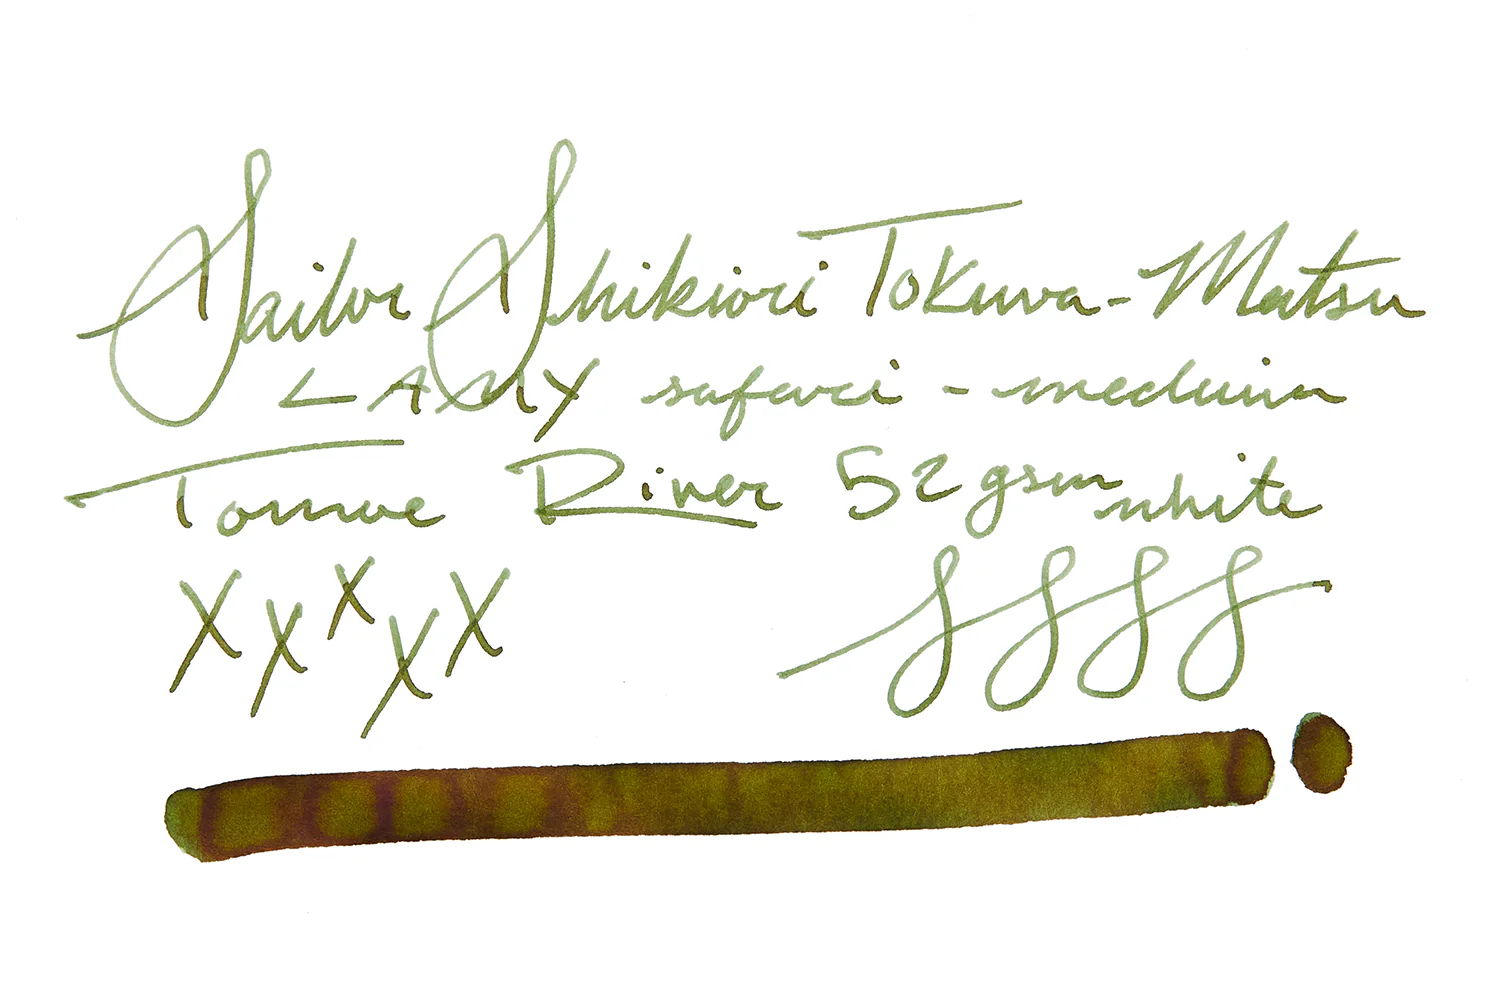 Sailor Shikiori Tokuva-Matsu
LAMY safari - medium
Tomoe River 52 gsm white
X X X X X